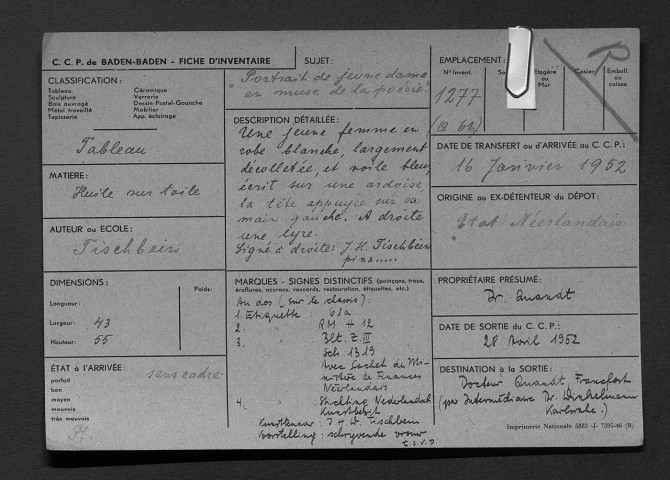 C. C. P. de BADEN-BADEN - FICHE D'INVENTAIRE
CLASSIFICATION :
Tableau
Sculpture
Bois ouvragé
Métal travaillé
Tapisserie
Céramique
Verrerie
Dessin-Pastel-Gouache
Mobilier
App. éclairage
Tableau
MATIERE :
Huile sur toile
AUTEUR ou ECOLE :
Tischbein
DIMENSIONS :
Poids :
Longueur :
Largeur : 43
Hauteur : 55
ÉTAT à l'ARRIVÉE :
sans cadre
parfait
bon
moyen
mauvais
très mauvais
SUJET :
"Portrait de jeune dame
en muse de la poésie"
DESCRIPTION DÉTAILLÉE :
Une jeune femme en
robe blanche, largement
décolletée, et voile bleu,
écrit sur une ardoise,
la tête appuyée sur sa
main gauche. A droite
une lyre.
Signé à droite : J. H. Tischbein
pinx.....
MARQUES - SIGNES DISTINCTIFS (poinçons, trous,
éraflures, accrocs, raccords, restauration, étiquettes, etc.)
Au dos (sur le chassis) :
1. Etiquette : 61a
2. " RM H 12
3. " Blt. Z. III
Sch 1319
Avec Cachet du Mi-
nistère de Finances
Néerlandais
4. " Stichting Nederlandsch
Kunstbezit
Kunstenaar : J H W. Tischbein
Voorstelling : schryvende vrouw
EMPLACEMENT :
N° Invent.
Étagère
ou
Mur
Casier
Emball.
ou
caisse
R
1277
(Q 62)
DATE DE TRANSFERT ou d'ARRIVÉE au C. C. P. :
16 Janvier 1952
ORIGINE ou EX-DÉTENTEUR du DÉPOT :
Etat Néerlandais
PROPRIÉTAIRE PRÉSUMÉ :
Dr. Quandt
DATE DE SORTIE du C. C. P. :
28 Avril 1952
DESTINATION à la SORTIE :
Docteur Quandt, Francfort
(par Intermédiaire Dr. Winkelmann
Karlsruhe.)
Imprimerie Nationale 5883 -J- 7395-46 (B)